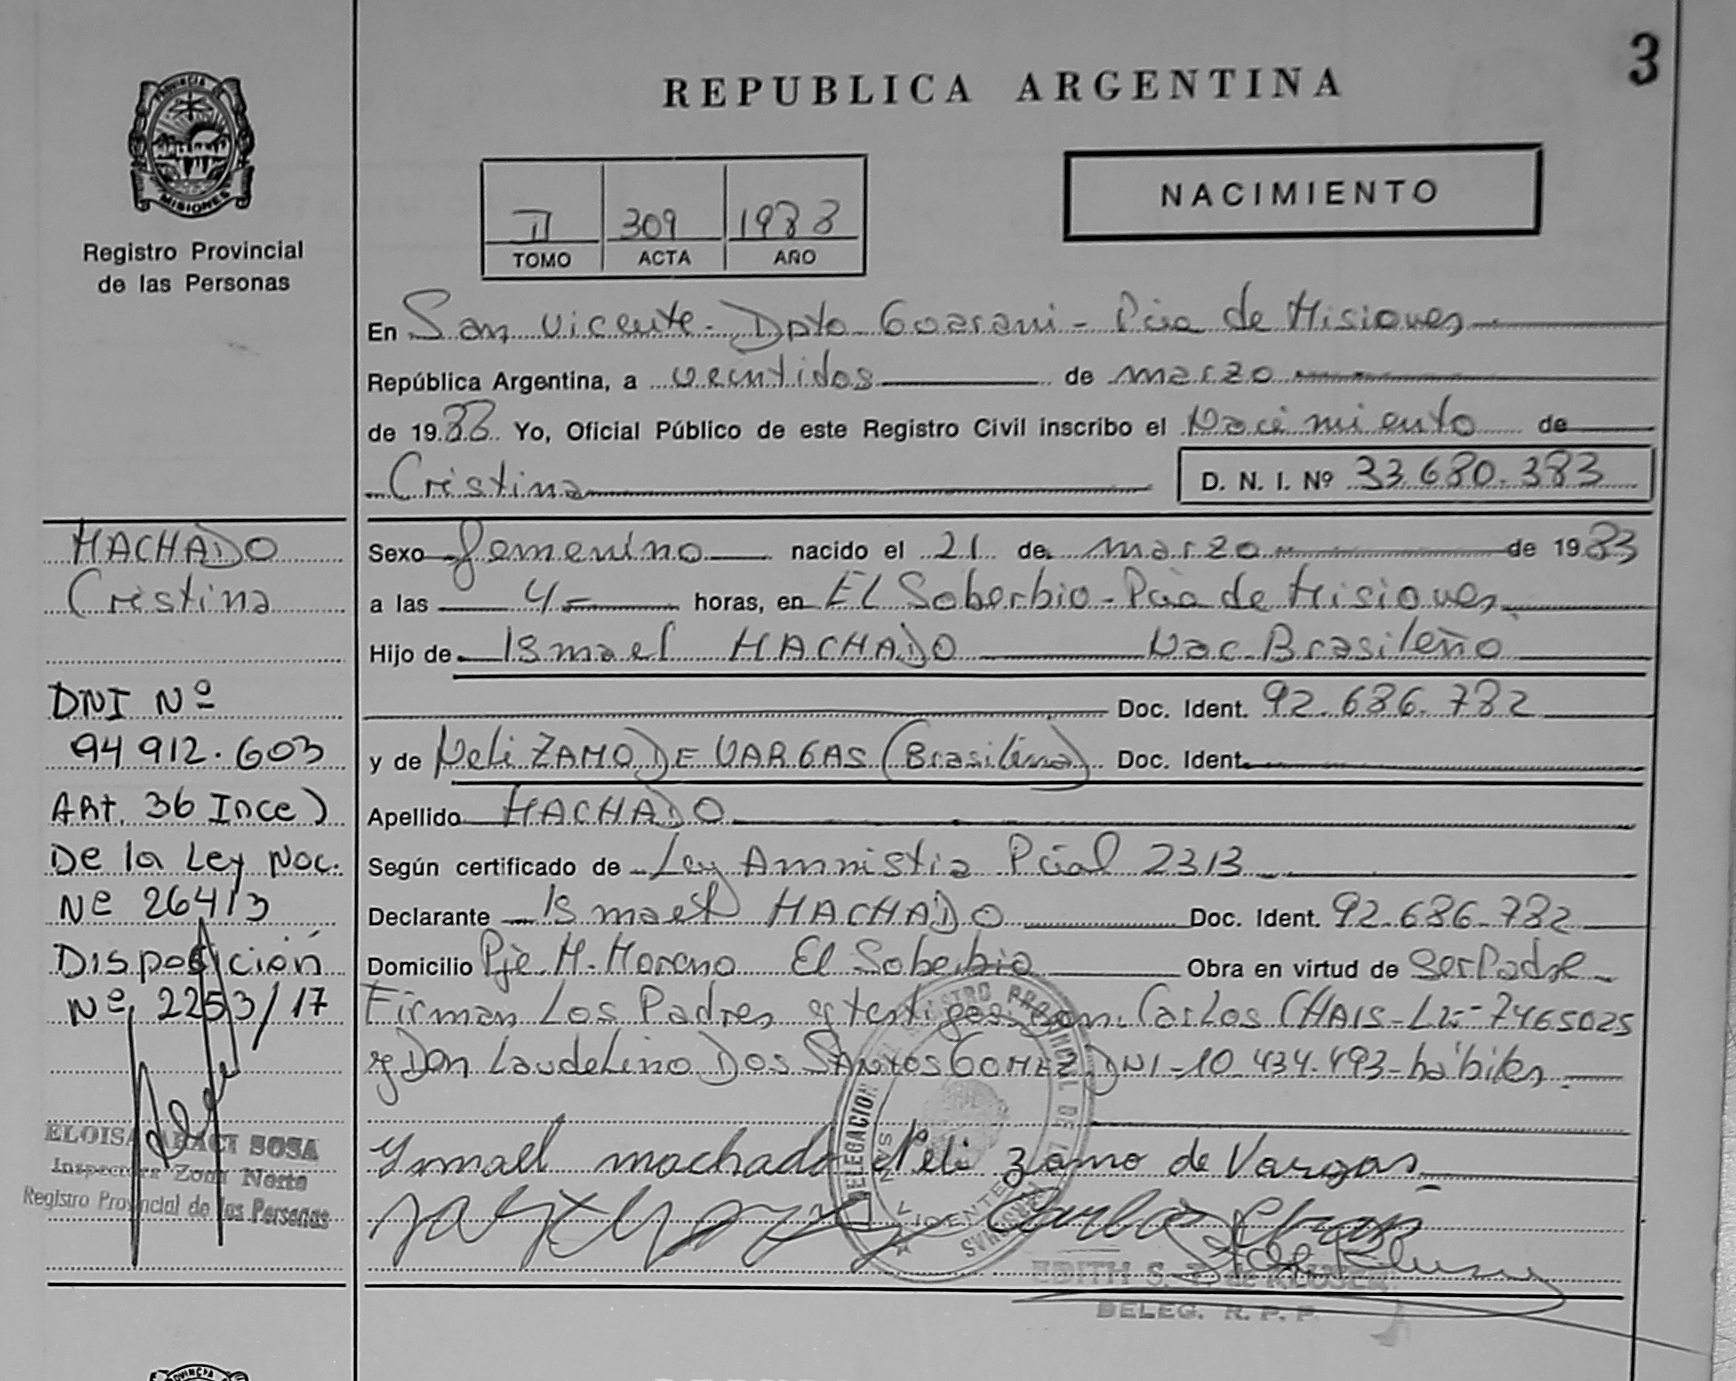 3
REPUBLICA ARGENTINA
PROVINCIA DE
MISIONES
Registro Provincial
de las Personas
NACIMIENTO
II 309 1988
TOMO ACTA AÑO
En San Vicente - Dpto Guarani - Pcia de Misiones
República Argentina, a veintidos de marzo
de 1988 Yo, Oficial Público de este Registro Civil inscribo el Nacimiento de
Cristina D. N. I. Nº 33.680.383
Sexo femenino nacido el 21 de marzo de 1988
a las 4 horas, en El Soberbio - Pcia de Misiones
Hijo de Ismael MACHADO Nac. Brasileño
Doc. Ident. 92.686.782
y de Neli ZAMO DE VARGAS (Brasileña) Doc. Ident.
Apellido MACHADO
Según certificado de Ley Amnistia Pcial 2313
Declarante Ismael MACHADO Doc. Ident. 92.686.782
Domicilio Pje M. Moreno El Soberbio Obra en virtud de ser Padre
Firman Los Padres y testigos Don Carlos CHAIS - LE - 7465025
y Don Laudelino Dos Santos GOMEZ DNI - 10.434.493 - hábiles
Ysmael machado Neli zamo de Vargas
DELEGACION REGISTRO PROVINCIAL DE LAS PERSONAS
SAN VICENTE
EDITH S.
DELEG. R. P. P.
MACHADO
Cristina
DNI Nº
94 912.603
Art. 36 Inc e)
De la Ley Nac.
Nº 26413
Disposición
Nº 2253/17
ELOISA ARACI SOSA
Inspectora Zona Norte
Registro Provincial de las Personas